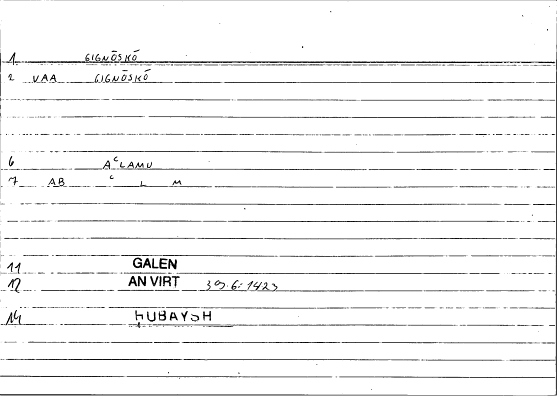 1 GIGNŌSKŌ
2 VAA GIGNŌSKŌ
6 AᶜLAMU
7 AB ᶜ L M
11 GALEN
12 AN VIRT
14 ḥUBAYSH